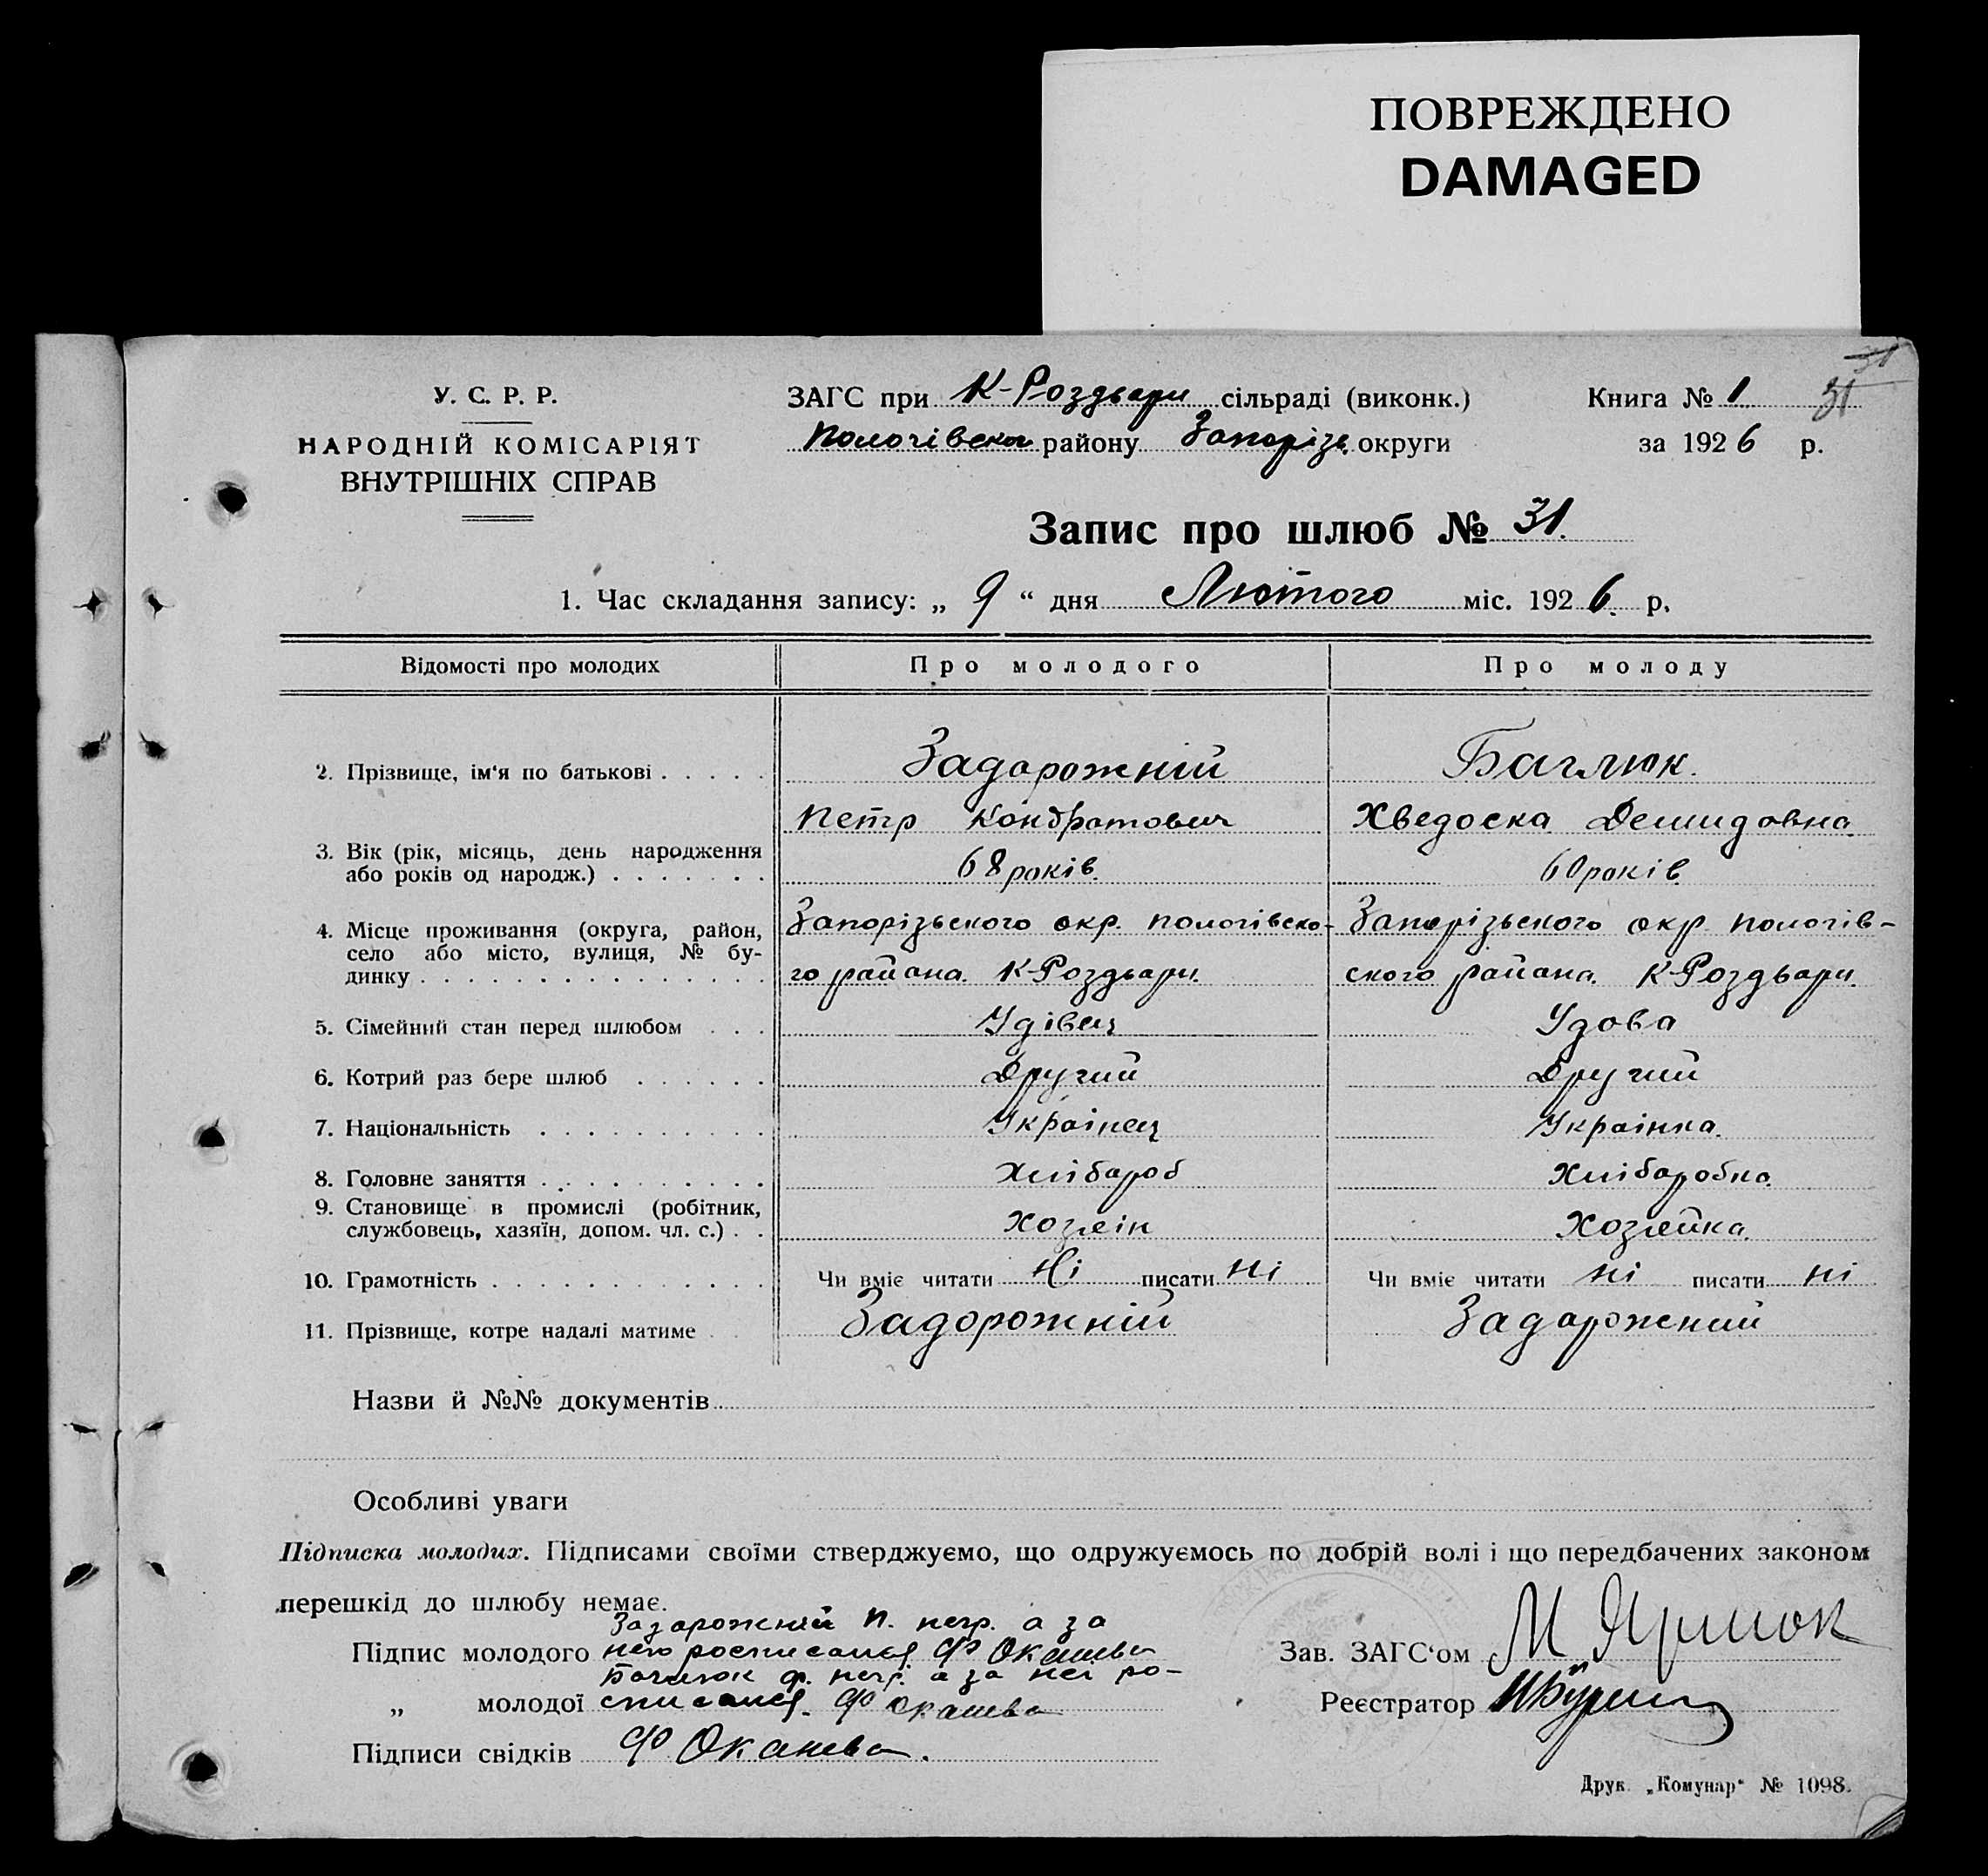 ПОВРЕЖДЕНО
DAMAGED
31
31
У. С. Р. Р.
НАРОДНІЙ КОМІСАРІЯТ
ВНУТРІШНІХ СПРАВ
ЗАГС при К-Роздьори сільраді (виконк.)
Пологівськ району Запорізь. округи
Книга № 1
за 1926 р.
Запис про шлюб № 31.
1. Час складання запису: „ 9 “ дня Лютого міс. 1926. р.
Відомості про молодих
Про молодого
Про молоду
2. Прізвище, ім'я по батькові . . . . .
Задорожній
Баглюк.
Петр Кондратович
Хведоска Демидовна
3. Вік (рік, місяць, день народження
або років од народж.) . . . . . . .
68 років.
60 років.
4. Місце проживання (округа, район,
село або місто, вулиця, № бу-
динку . . . . . . . . . . . . . . .
Запорізьского окр. пологівско-
го района. К-Роздьори.
Запорізьского окр пологів-
ского района. К-Роздьори.
5. Сімейний стан перед шлюбом . . .
Удівец
Удова
6. Котрий раз бере шлюб . . . . . .
Другий
Другий
7. Національність . . . . . . . . . .
Українец
Українка.
8. Головне заняття . . . . . . . . . .
Хлібороб
Хліборобка
9. Становище в промислі (робітник,
службовець, хазяїн, допом. чл. с.) . .
Хозяін
Хозяйка.
10. Грамотність . . . . . . . . . . . .
Чи вміє читати Ні писати Ні
Чи вміє читати ні писати ні
11. Прізвище, котре надалі матиме . .
Задорожній
Задорожний
Назви й №№ документів
Особливі уваги
Підписка молодих. Підписами своїми стверджуємо, що одружуємось по добрій волі і що передбачених законом
перешкід до шлюбу немає.
Задорожній П. негр. а за
Підпис молодого него росписался Ф
Баглюк Ф. негр. а за неі ро-
„ молодої списался. Ф
Підписи свідків Ф
Зав. ЗАГС'ом М
Реєстратор
Друк. „Комунар“ № 1098.